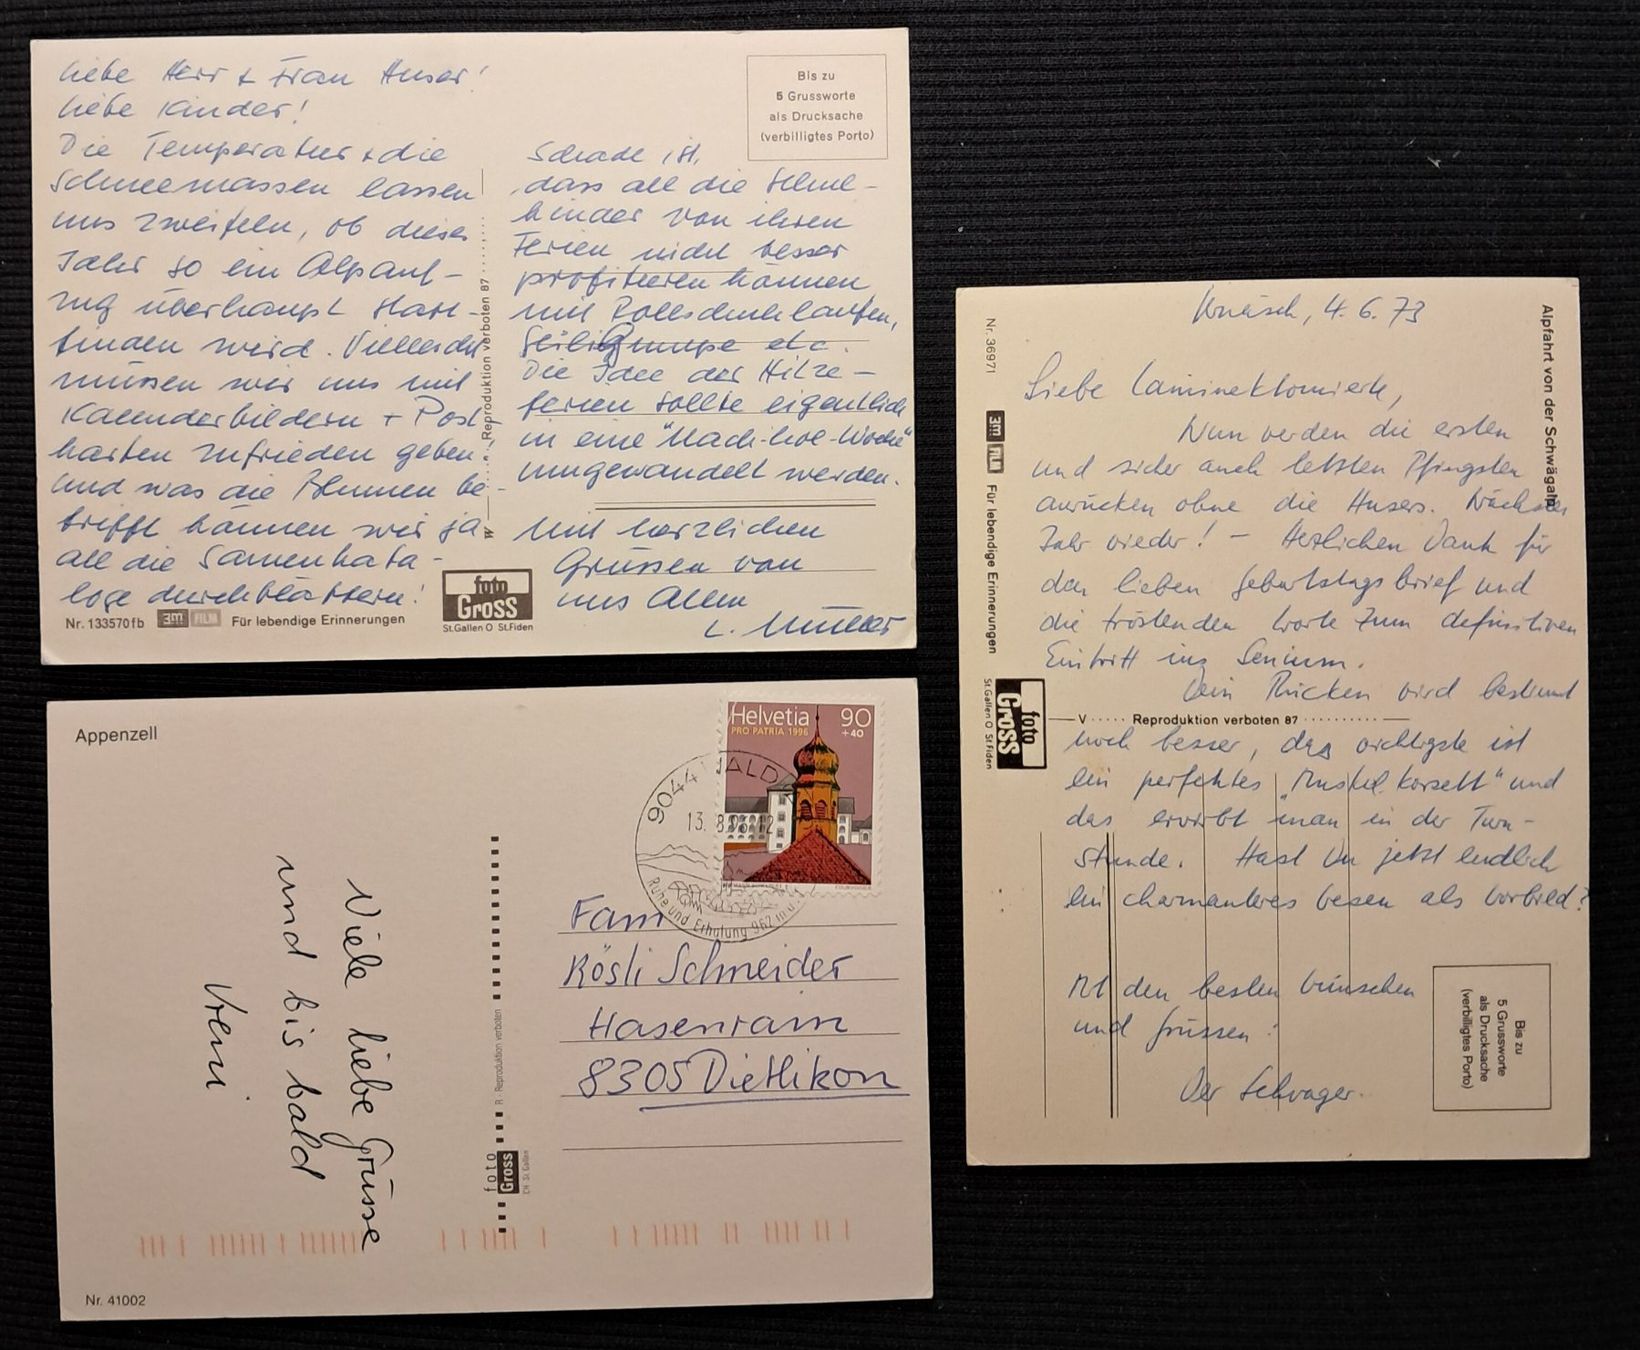 Liebe Herr + Frau Huser!
Liebe Kinder!
Die Temperatur + die
Schneemassen lassen
uns zweifeln, ob dieses
Jahr so ein Alpauf-
zug überhaupt statt-
finden wird. Vielleicht
müssen wir uns mit
Kalenderbildern + Post-
karten zufrieden geben.
Und was die Blumen be-
trifft können wir ja
all die Samenkata-
loge durchblättern!
Schade ist,
dass all die Schul-
kinder von ihren
Ferien nicht besser
profitieren können
mit Rollschuhlaufen,
Seiligumpe etc.
Die Idee der Hitze-
ferien sollte eigentlich
in eine "Mach-hoe-Woche"
umgewandelt werden.
Mit herzlichen
Grüssen von
uns Allen
L. Müller
Bis zu
5 Grussworte
als Drucksache
(verbilligtes Porto)
W Reproduktion verboten 87
Nr. 133570fb 3M FILM Für lebendige Erinnerungen
foto
Gross
St.Gallen O St.Fiden
Appenzell
Viele liebe Grüsse
und bis bald
Vreni
Helvetia 90
PRO PATRIA 1996 +40
9044 WALD AR
13. 8. 96 12
Ruhe und Erholung 962 m.ü.
Fam
Rösli Schneider
Hasenrain
8305 Dietlikon
R Reproduktion verboten
foto
Gross
CH-St. Gallen
Nr. 41002
Urnäsch, 4. 6. 73
Liebe Laminektomierte,
Nun werden die ersten
und sicher auch letzten Pfingsten
anrücken ohne die Husers. Nächstes
Jahr wieder! - Herzlichen Dank für
den lieben Geburtstagsbrief und
die tröstenden Worte zum definitiven
Eintritt ins Senium.
Dein Rücken wird bestimmt
noch besser, das wichtigste ist
ein perfektes „Muskel korsett" und
das erwirbt man in der Turn-
stunde. Hast Du jetzt endlich
ein charmanteres Wesen als Vorbild?
Mit den besten Wünschen
und Grüssen:
Der Schwager.
Alpfahrt von der Schwägalp
Nr. 36971
3M FILM Für lebendige Erinnerungen
foto
Gross
St.Gallen O St.Fiden
V Reproduktion verboten 87
Bis zu
5 Grussworte
als Drucksache
(verbilligtes Porto)